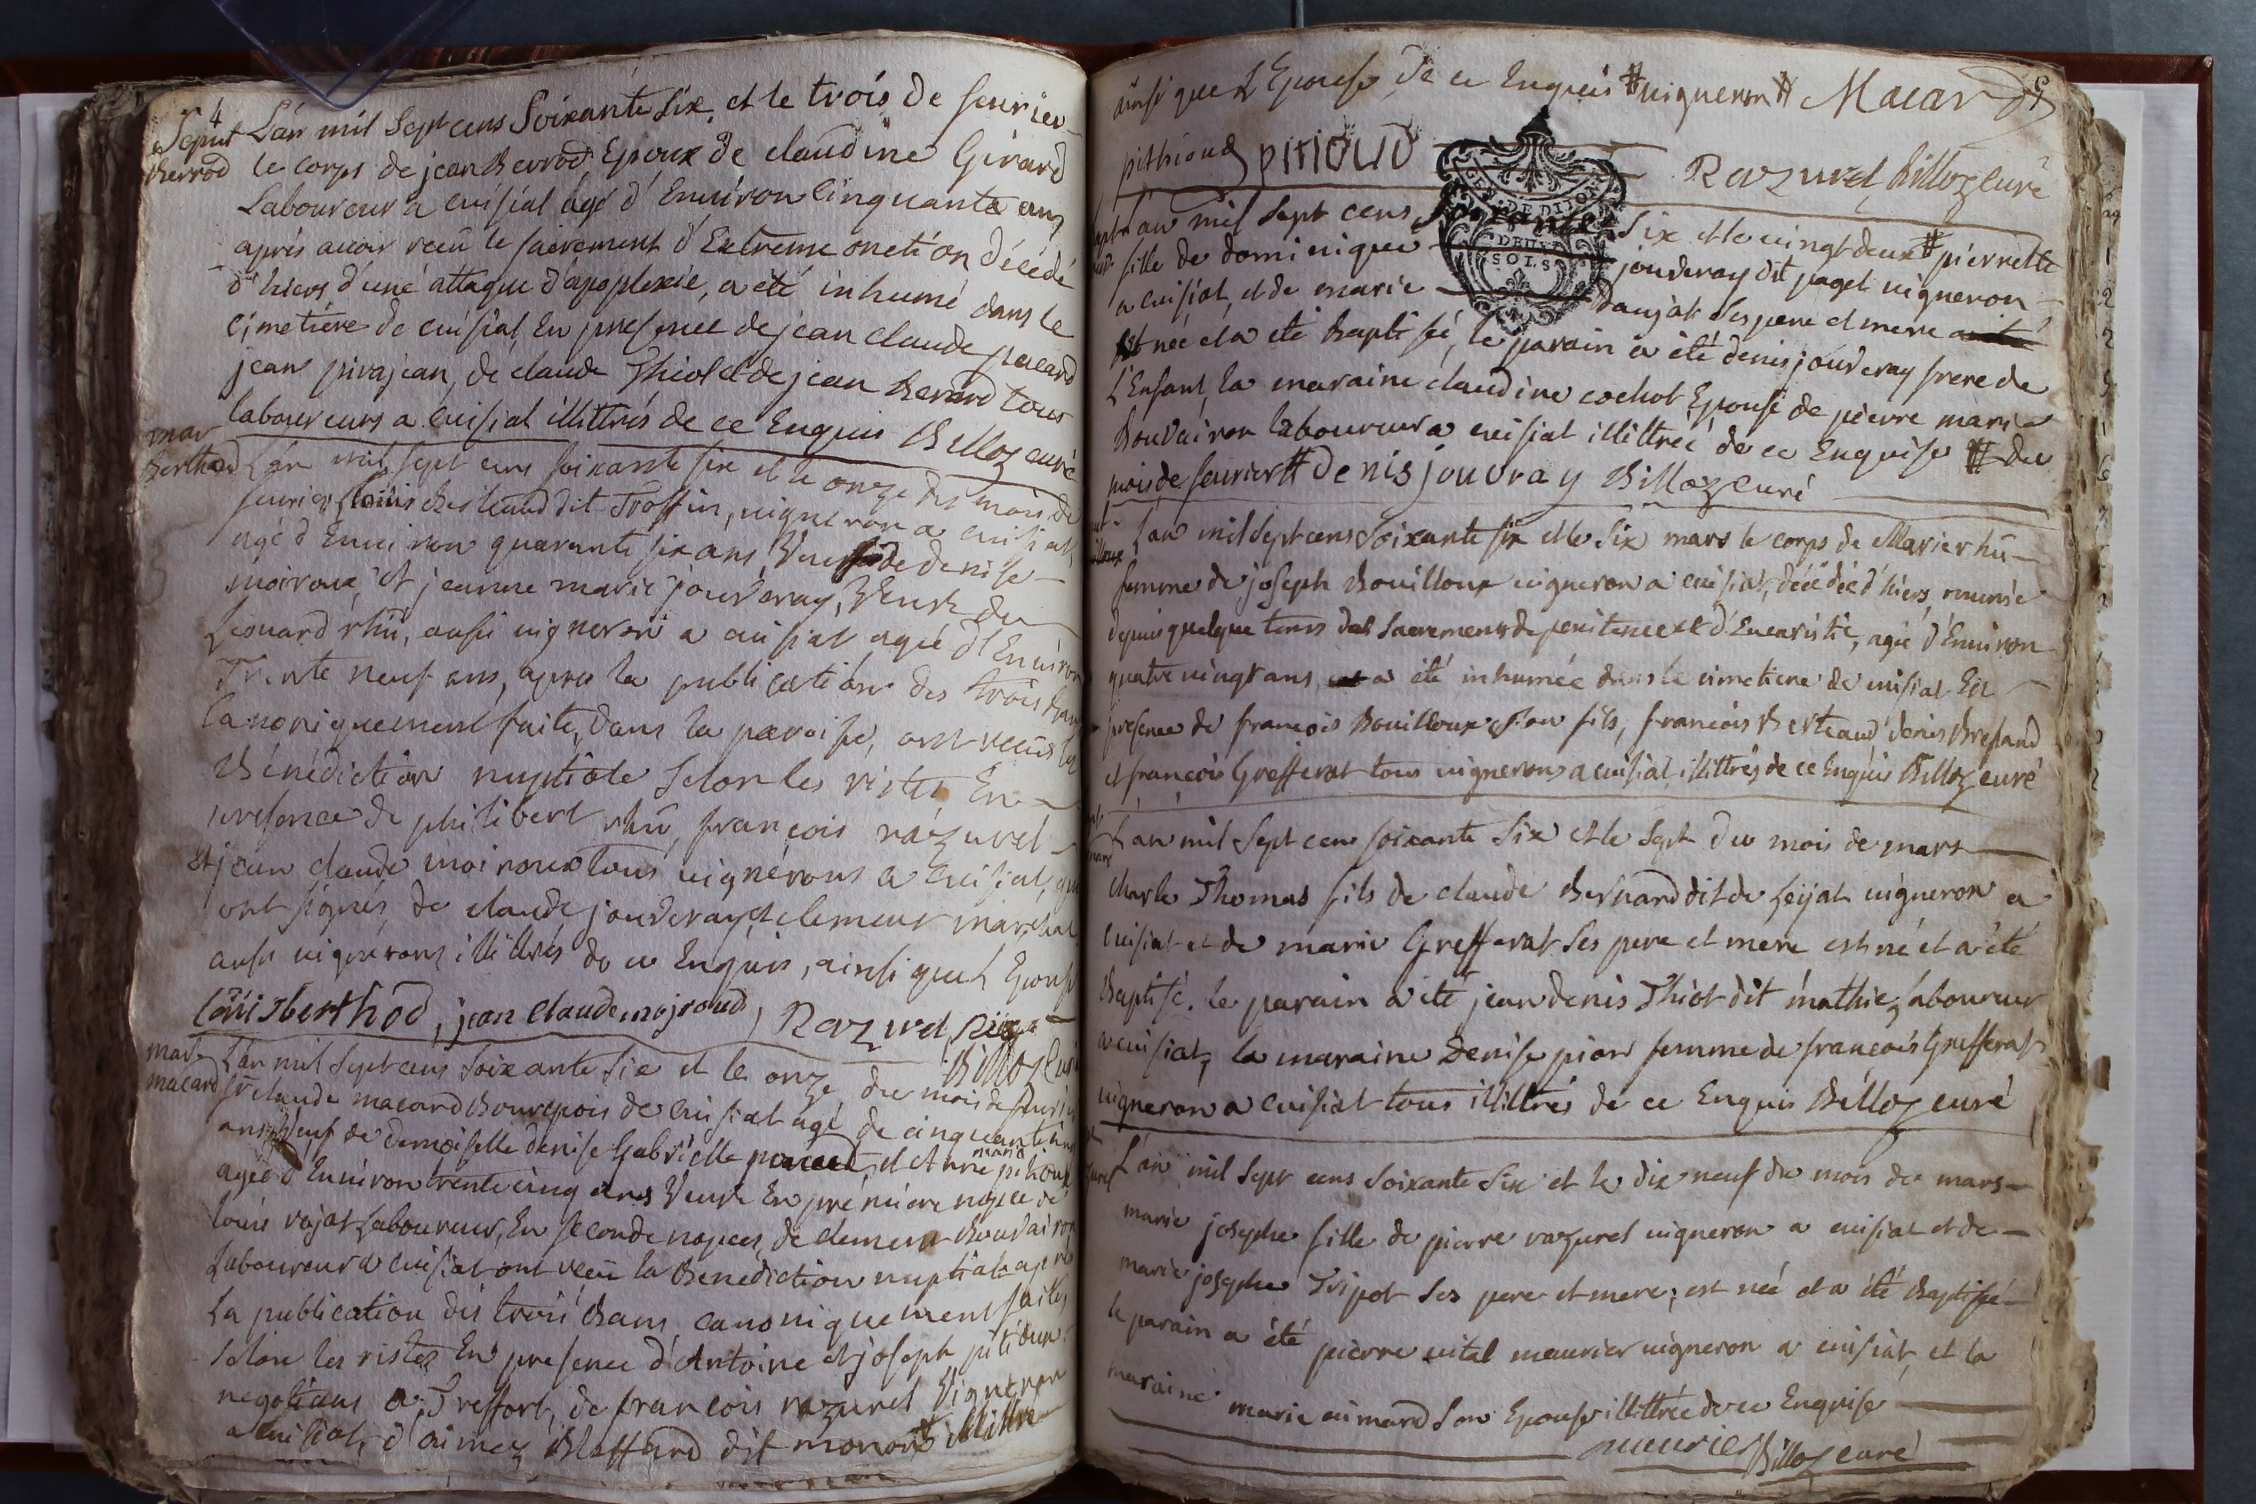 4
Sepult L'an mil Sept cens Soixante Six, et le trois de feurier
Berrod le corps de jean Berrod Epoux de claudine Girard
Laboureur a cuisiat agé d'Enuiron Cinquante ans
aprés auoir receü le sacrement d'Extreme onction décédé
d'hiers d'une attaque d'apoplexie, a été inhumé dans le
cimetiére de cuisiat En presence de jean claude pacard
jean pirajean, de claude Thiol et de jean Berard tous
laboureurs a Cuisiat illittrés de ce Enquis Billoz curé
mar
Berthod L'an mil sept cens soixante six et le onze du mois de
feurier Loüis Berthaud dit Troffin, uigneron a cuisiat,
agé d'Enuiron quarante six ans, Veuf de denise
moiroux, et jeanne marie jouveray, Veuve de
Leonard rhü, aussi uigneron a cuisiat agée d'Enuiron
Trente neuf ans, apres la publication des trois bans
Canoniquement faite, dans la paroisse, ont receüs la
Bénédiction nuptiale Selon les rittes En
presence de philibert rhü, françois razurel
et jean claude moiroux tous uignérons a Cuisiat, qui
ont signés de claude jouveray et clement marechal
aussi uignérons illittrés de ce Enquis, ainsi que L'Epouse
Loüis berthod, jean Claude mojroud, Razurel
Billoz Curé
mar L'an mil sept cens Soixante Six et le onze du mois de feurier
macard Sr claude macard Bourgeois de Cuisiat agé de cinquante
ans, Veuf de demoiselle denise Gabrielle et Anne marie pitioux
agée d'Enuiron trente cinq ans Veuve En prémiére nopce de
Loüis vojat Laboureur, En seconde nopces, de clement Bouvairon
Laboureur a cuisiat ont receü la Benediction nuptiale aprés
La publication des trois Bans canoniquement faites
Selon les ristes En presence d'Antoine et joseph pitioux
negotians a Treffort, de francois razurel Vigneron
a Cuisiat, d'aimez Bloffard dit monon # illittré
ainsi que L'Epouse de ce Enquis # uigneron # Macard
pithioud PITIOUD Razurel Billoz curé
GEN. DE DIJON
DEUX
SOLS
L'an mil Sept cens Soixante Six et le uingt deux # pierrette
fille de dominique jouveray dit paget uigneron
a cuisiat, et de marie Daujat Ses pere et mere
est née et a eté Baptisé, le parain a été denis jouveray frere de
L'Enfant, la maraine claudine cochot Epouse de pierre marie
Bouvairon laboureur a cuisiat illittreé de ce Enquise # du
mois de feurier # Denis jouvray Billoz curé
L'an mil Sept cens Soixante six et le Six mars le corps de Marie rhü
femme de joseph Bouilloux uigneron a cuisiat, décédée d'hiers, munie
depuis quelque tems des Sacremens de penitence et d'Eucaristie, agée d'Enuiron
quatre uingt ans, a été inhumée dans le cimetiere de cuisiat En
presence de françois Bouilloux Son fils, francois Berteaud denis Bresand
et françois Grefferat tous uignerons a cuisiat illittrés de ce Enquis Billoz curé
L'an mil Sept cens soixante Six et le Sept du mois de mars
Charle Thomas fils de claude Bernard dit de Leijat uigneron a
Cuisiat et de marie Grefferat Ses pere et mere est né et a été
Baptisé. le parain a été jean denis Thiot dit mathie, laboureur
a cuisiat, la maraine Denise pion femme de francois Grefferat
uigneron a Cuisiat tous illittrés de ce Enquis Billoz curé
L'an mil Sept cens Soixante Six et le dix neuf du mois de mars
marie josephe fille de pierre razurel uigneron a cuisiat et de
marie josephe Tripot Ses pere et mere, est née et a été Baptisée
le parain a été pierre uital meurier uigneron a cuisiat, et la
maraine marie aimard Son Epouse illittrée de ce Enquise
meurier Billoz curé